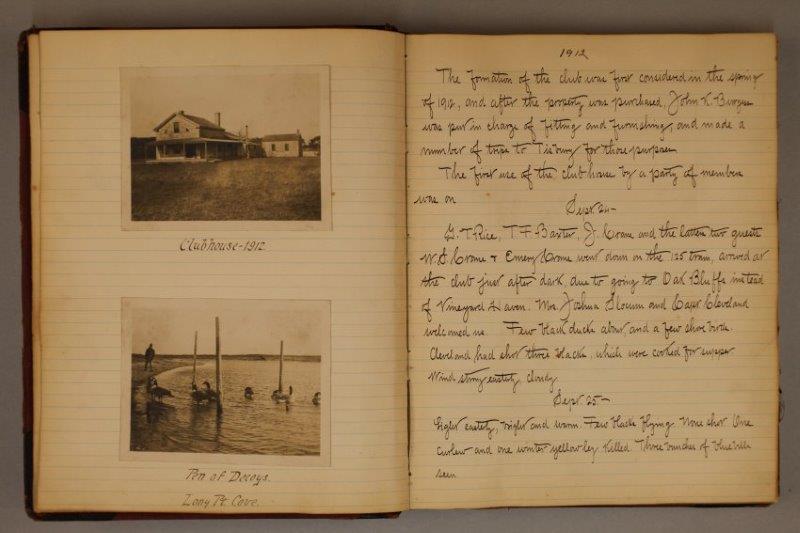 Clubhouse-1912
Pen of Decoys.
Long Pt. Cove.
1912
The formation of the club was first considered in the spring
of 1912, and after the property was purchased, John K. Burgess
was put in charge of fitting and furnishing, and made a
number of trips to Tisbury for those purposes
The first use of the club house by a party of members
was on
Sept 24-
G. T Rice, T F Baxter, J. Crane and the latters two guests
W S Crane + Emery Crane went down on the 125 train, arrived at
the club just after dark, due to going to Oak Bluffs instead
of Vineyard Haven. Mrs. Joshua Slocum and Capt Cleveland
welcomed us. Few black ducks about and a few shore birds.
Cleveland had shot three blacks, which were cooked for supper
Wind strong easterly, cloudy.
Sept 25-
Light easterly, bright and warm. Few blacks flying. None shot. One
curlew and one winter yellowleg killed. Three bunches of blue bills
seen